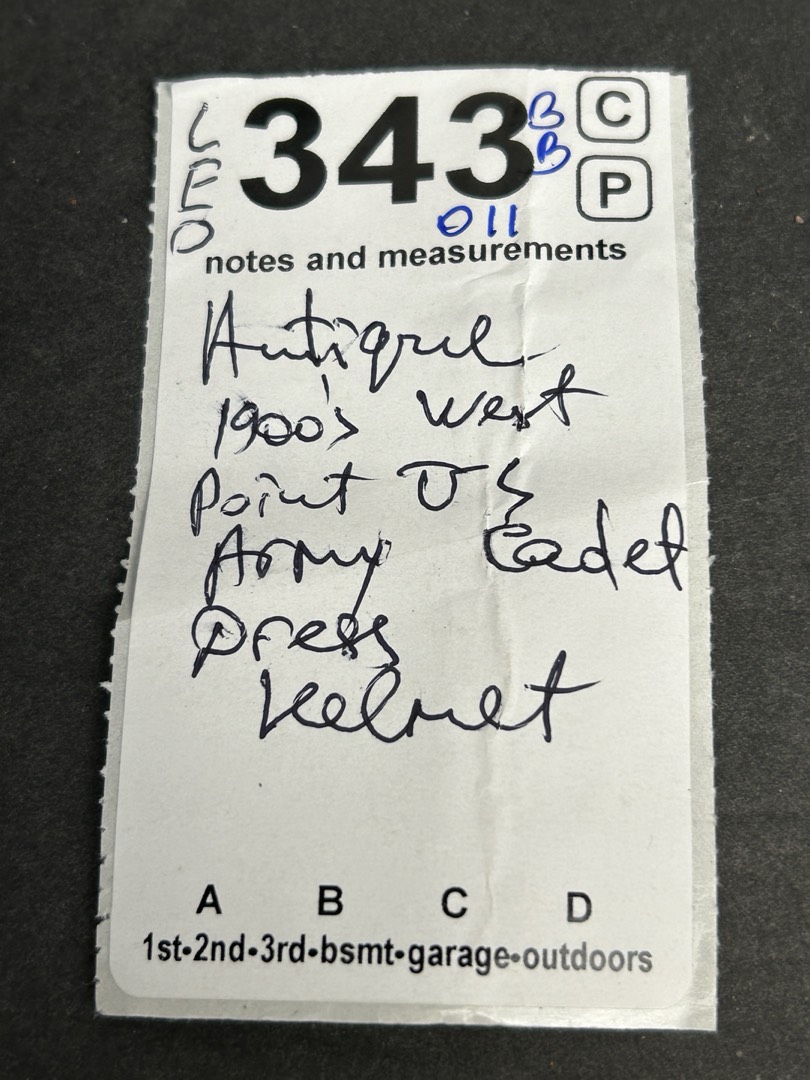 LEO
343
BB
C
P
011
notes and measurements
Antique
1900's West
Point US
Army Cadet
Dress
Helmet
A B C D
1st•2nd•3rd•bsmt•garage•outdoors